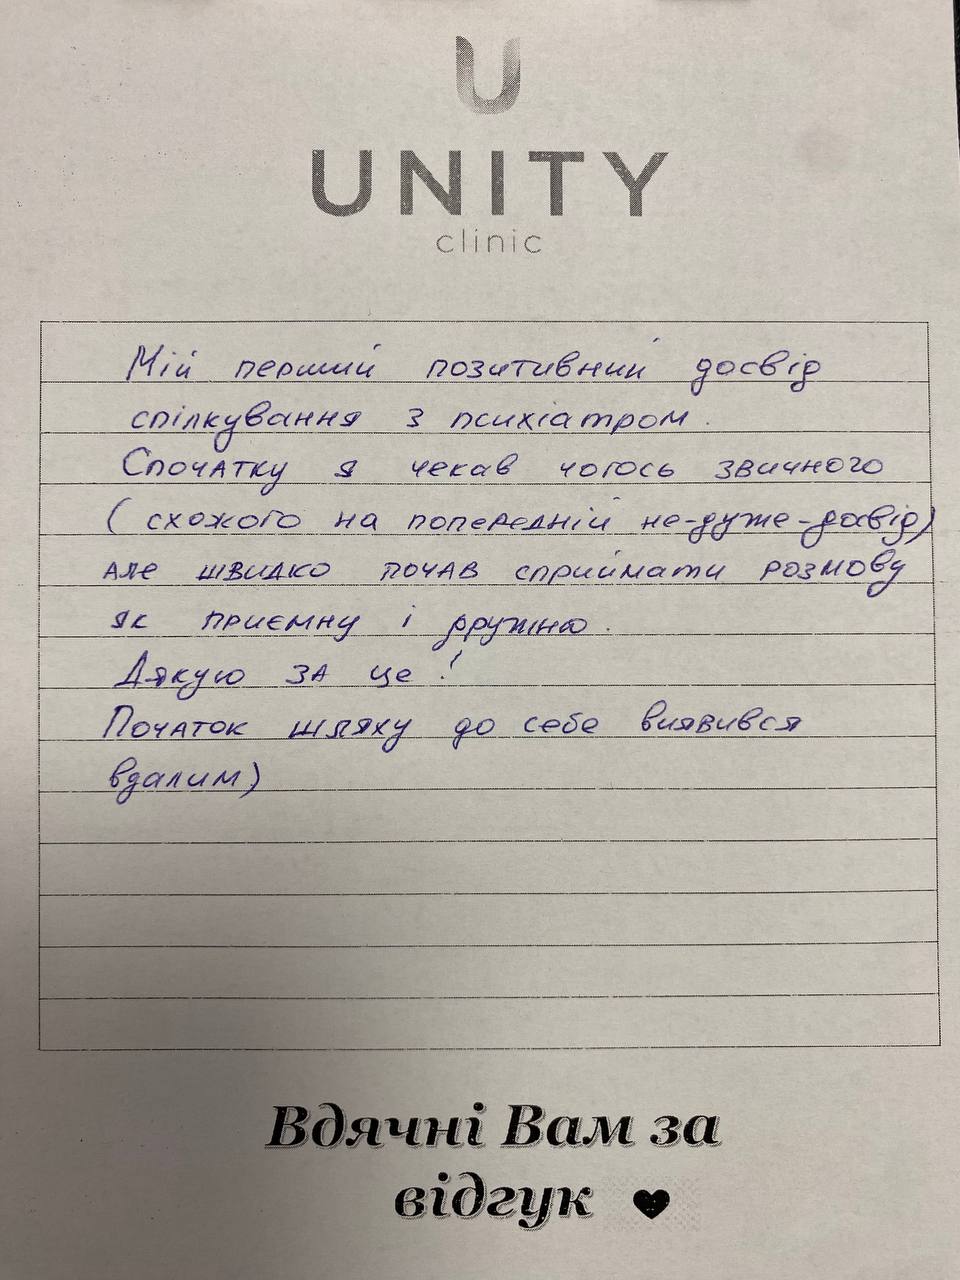 U
UNITY
clinic
Мій перший позитивний досвід
спілкування з психіатром.
Спочатку я чекав чогось звичного
(схожого на попередній не-дуже-досвід)
але швидко почав сприймати розмову
як приємну і дружню.
Дякую за це!
Початок шляху до себе виявився
вдалим)
Вдячні Вам за
відгук ♥